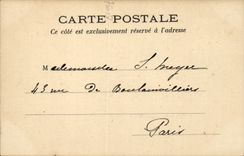 CARTE POSTALE
Ce côté est exclusivement réservé à l'adresse
Mademoiselle S. Meyer
43 rue De Boulainvilliers
Paris